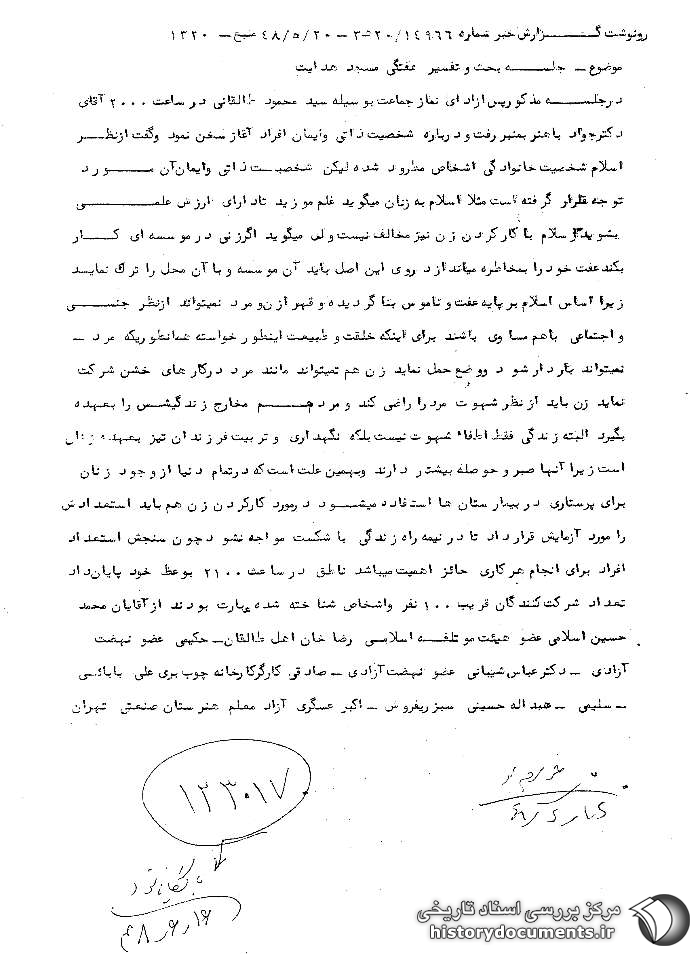 رونوشت گزارش خبر شماره ۲۰/۱۴۹۶۶ه۳ – ۴۸/۵/۲۰ – منبع – ۱۳۲۰
موضوع – جلسه بحث و تفسیر هفتگی مسجد هدایت
درجلسه مذکور پس ازادای نماز جماعت بوسیله سید محمود طالقانی درساعت ۲۰۰۰ آقای
دکترجواد باهنر بمنبر رفت و درباره شخصیت ذاتی وایمان افراد آغاز سخن نمود وگفت ازنظر
اسلام شخصیت خانوادگی اشخاص مطرود شده لیکن شخصیت ذاتی وایمان‌آن مورد
توجه قرار گرفته است مثلا اسلام به زنان میگوید علم موزید تادارای ارزش علمی
بشوید اسلام با کارکردن زن نیز مخالف نیست ولی میگوید اگرزنی درموسسه ای کار
بکند عفت خود را بمخاطره میاندازد روی این اصل باید آن موسسه و یا آن محل را ترك نماید
زیرا اساس اسلام بر پایه عفت و ناموس بنا گردیده و قهر از زن و مرد نمیتواند ازنظر جنسی
و اجتماعی باهم مساوی باشند برای اینکه خلقت و طبیعت اینطور خواسته همانطوریکه مرد –
نمیتواند باردار شود ووضع حمل نماید زن هم نمیتواند مانند مرد درکارهای خشن شرکت
نماید زن باید ازنظر شهوت مردرا راضی کند و مردهم مخارج زندگیش را بعهده
بگیرد البته زندگی فقط اطفاء شهوت نیست بلکه نگهداری و تربیت فرزندان نیز بعهده زنان
است زیرا آنها صبر و حوصله بیشتر دارند وبهمین علت است که درتمام دنیا از وجود زنان
برای پرستاری در بیمارستان ها استفاده میشود درمورد کارکردن زن هم باید استعدادش
را مورد آزمایش قرارداد تا در نیمه راه زندگی با شکست مواجه نشود چون سنجش استعداد
افراد برای انجام هرکاری حائز اهمیت میباشد ناطق در ساعت ۲۱۰۰ بوعظ خود پایان‌داد
تعداد شرکت‌کنندگان قریب ۱۰۰ نفر واشخاص شناخته شده عبارت بودند از آقایان محمد
حسین اسلامی عضو هیئت موتلفه اسلامی رضا خان اهل طالقان – حکیمی عضو نهضت
آزادی – دکترعباس شیبانی عضو نهضت آزادی – صادقی کارگرکارخانه چوب بری علی بابائی
– سلیمی – عبداله حسینی سبزیفروش – اکبر عسگری آزاد معلم هنرستان صنعتی تهران
۱۳۳۰۱۷
بایگانی شود
۴۸/۶/۱۶
مرکز بررسی اسناد تاریخی
historydocuments.ir